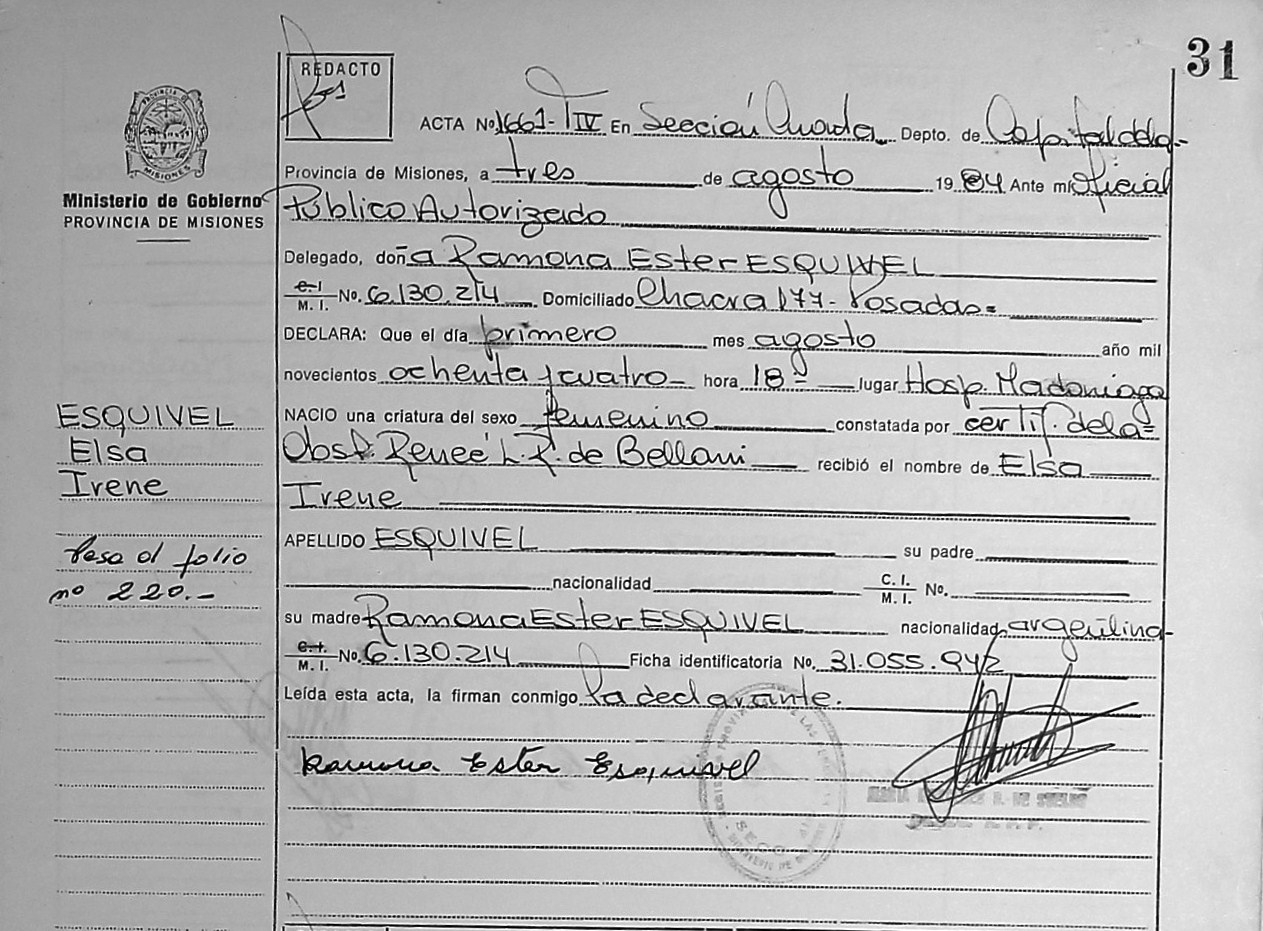 31
REDACTO
PROVINCIA DE
MISIONES
Ministerio de Gobierno
PROVINCIA DE MISIONES
ACTA Nº 1661-T IV En Sección Cuarta Depto. de Capital de la-
Provincia de Misiones, a tres de agosto 1984 Ante mí Oficial
Público Autorizado
Delegado, doña Ramona Ester ESQUIVEL
C.I. M. I. No. 6.130.214 Domiciliado Chacra 177- Posadas=
DECLARA: Que el día primero mes agosto año mil
novecientos ochenta y cuatro- hora 18 lugar Hosp. Madariaga
NACIO una criatura del sexo femenino constatada por certif. de la=
Obst. Reneé L. R. de Bellani recibió el nombre de Elsa
Irene
APELLIDO ESQUIVEL su padre
nacionalidad C. I. M. I. No.
su madre Ramona Ester ESQUIVEL nacionalidad argentina-
C.I. M. I. No. 6.130.214 Ficha identificatoria No. 31.055.942
Leída esta acta, la firman conmigo la declarante.
Ramona Ester Esquivel
ESQUIVEL
Elsa
Irene
Pasa al folio
nº 220.-